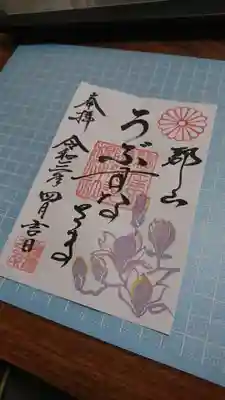 郡山
うぶすな
さま
奉拝
令和三年四月吉日